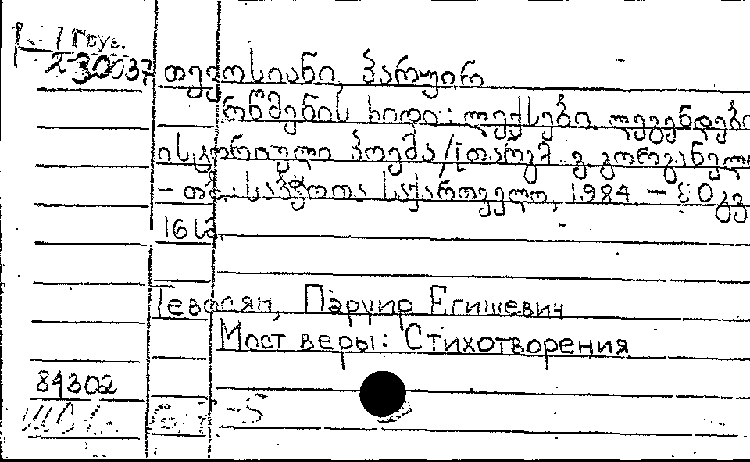 Груз.
2-30037
თევოსიანი, პარუირ
რწმენის ხიდი: ლექსები, ლეგენდები
ისტორიული პოემა / [თარგმ. გ. გორგანელი
- თბ.: საბჭოთა საქართველო, 1984 – 80 გვ
16 სმ.
Тевосян, Паруир Егишевич
Мост веры: Стихотворения
84302